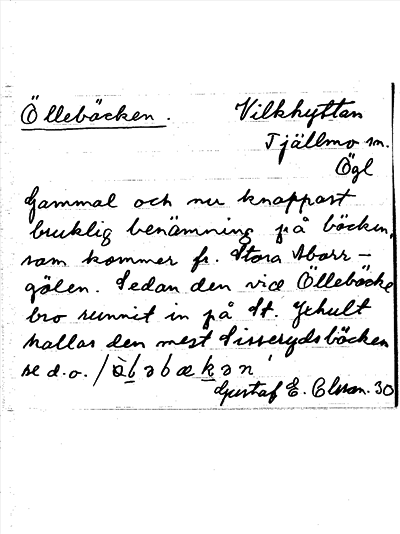 Öllebäcken. Vilkhyttan
Tjällmo sn.
Ögl
Gammal och nu knappast
bruklig benämning på bäcken,
som kommer fr. Stora Abborr-
gölen. Sedan den vid Öllebäcke
bro runnit in på St. Jehult
kallas den mest Sisserydsbäcken
se d.o.
Gustaf E. Olsson. 30